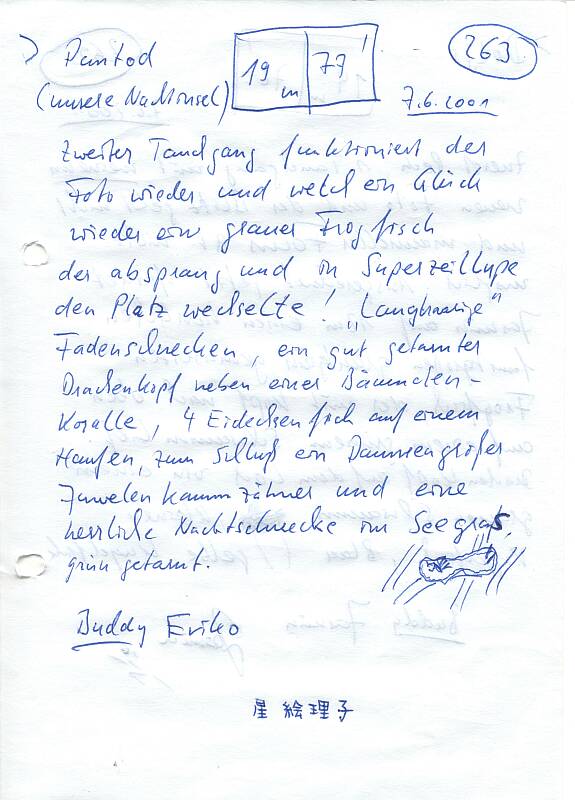 Pantod
19 m 77'
263
(unsere Nachtinsel)
7.6.2001
Zweiter Tauchgang funktioniert der
Foto wieder und welch ein Glück
wieder ein grauer Frogfisch
der absprang und in Superzeitlupe
den Platz wechselte! „Langhaarige"
Fadenschnecken, ein gut getarnter
Drachenkopf neben einer Bäumchen-
Koralle, 4 Eidechsenfisch auf einem
Haufen, zum Schluß ein Daumengroßer
Juwelenkammzähner und eine
herrliche Nacktschnecke im Seegras,
grün getarnt.
Buddy Eriko
星 絵理子